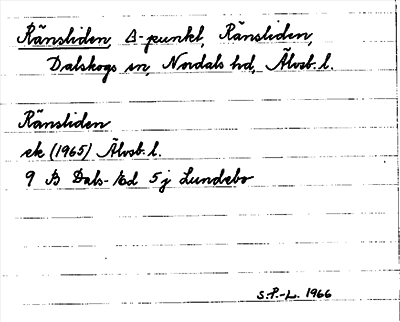 Ränsliden, Δ-punkt, Ränsliden,
Dalskogs sn, Nordals hd, Älvsb. l.
Ränsliden
ek (1965) Älvsb. l.
9 B Dals-Ed 5 j Lundebo
S.P.-L. 1966